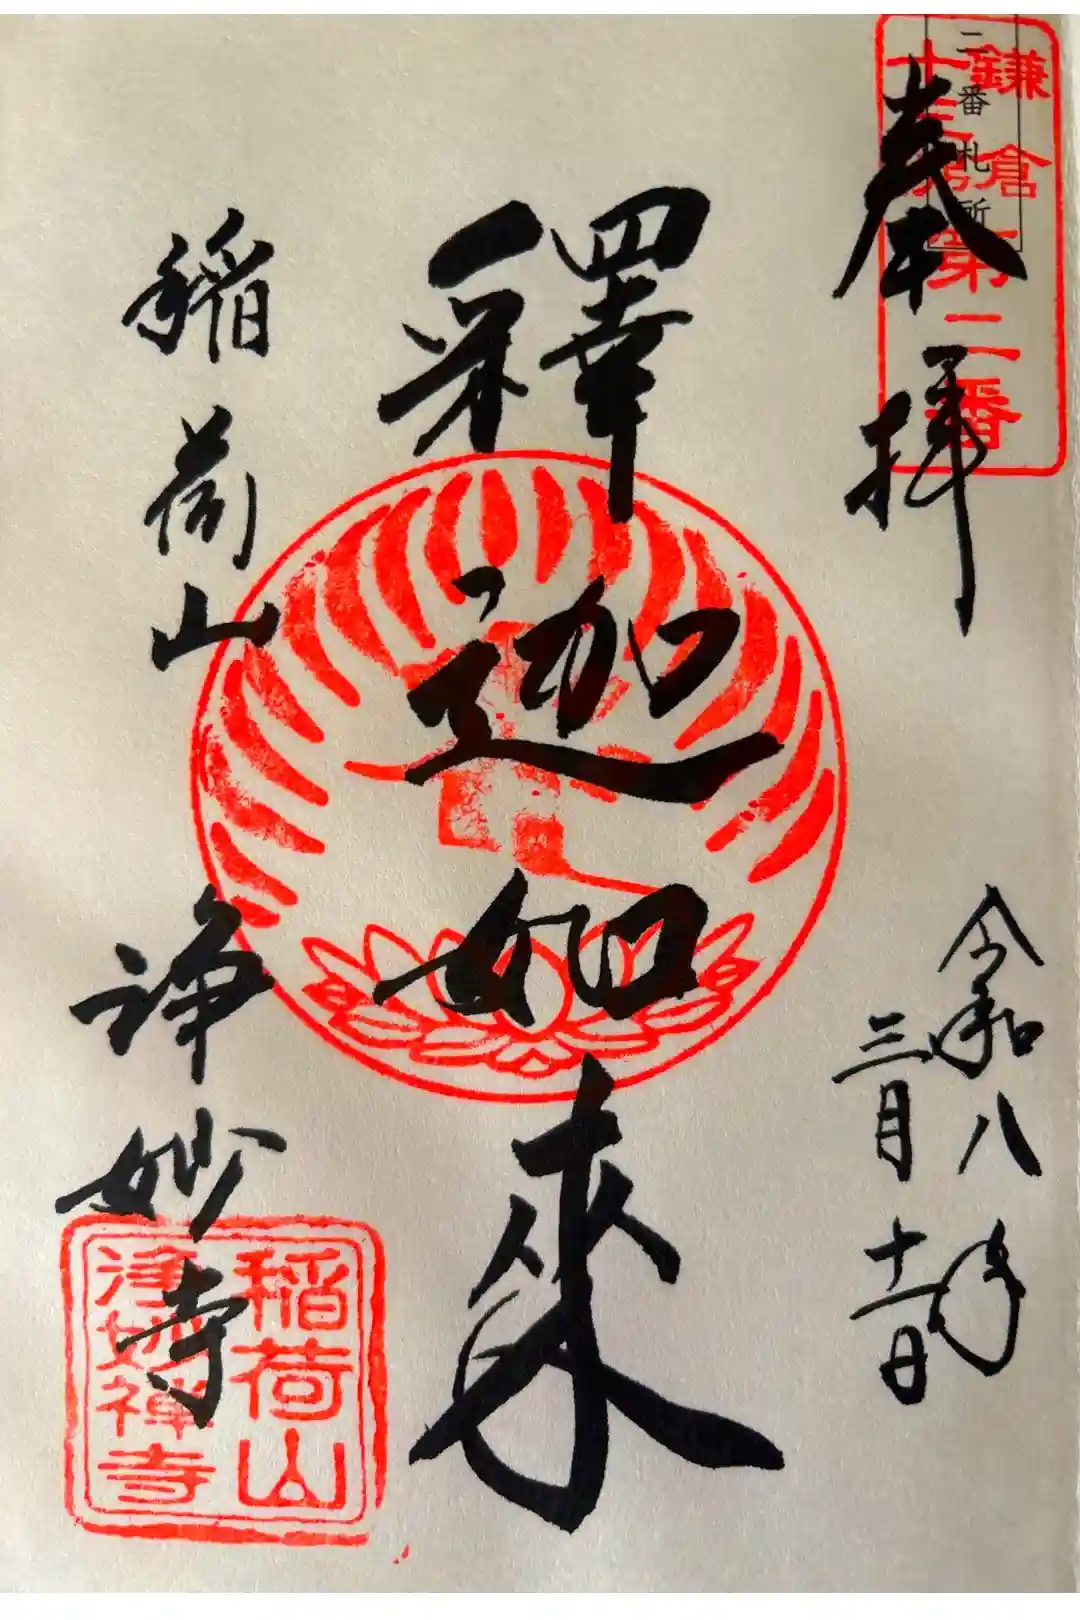 二番札所
鎌倉
十三佛
第二番
奉拝
釋迦如來
令和八年
三月十二日
稲荷山
浄妙寺
稲荷山
浄妙禅寺